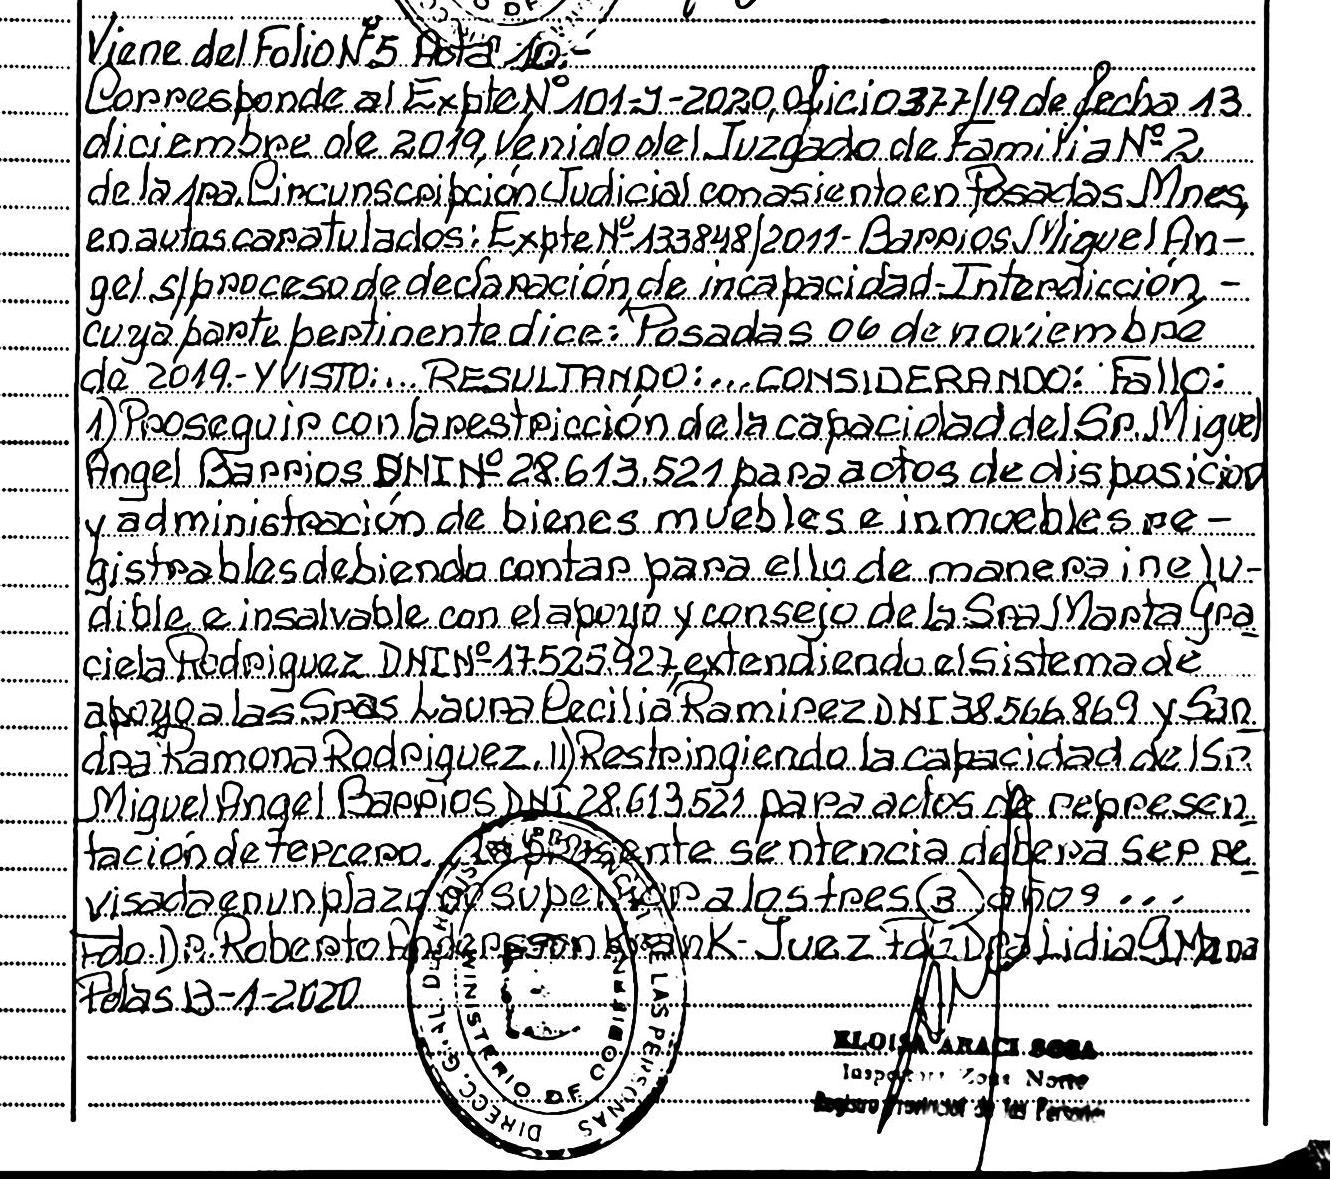 Viene del Folio Nº 5 Acta 10.-
Corresponde al Expte Nº 101-J-2020, Oficio 377/19 de fecha 13
diciembre de 2019, venido del Juzgado de Familia Nº 2
de la 1ra. Circunscripción Judicial con asiento en Posadas Mnes,
en autos caratulados: Expte Nº 133848/2011- Barrios Miguel An-
gel s/proceso de declaración de incapacidad-Interdicción, -
cuya parte pertinente dice: "Posadas 06 de noviembre
de 2019.- Y VISTO:... RESULTANDO:... CONSIDERANDO: Fallo:
1) Proseguir con la restricción de la capacidad del Sr. Miguel
Angel Barrios DNI Nº 28.613.521 para actos de disposición
y administración de bienes muebles e inmuebles re-
gistrables debiendo contar para ello de manera inelu-
dible e insalvable con el apoyo y consejo de la Sra Marta Gra
ciela Rodriguez DNI Nº 17.525.927, extendiendo el sistema de
apoyo a las Sras Laura Cecilia Ramirez DNI 38.566.869 y San
dra Ramona Rodriguez. II) Restringiendo la capacidad del Sr.
Miguel Angel Barrios DNI 28.613.521 para actos de represen
tación de tercero. La presente sentencia debera ser re
visada en un plazo no superior a los tres (3) años ...
Fdo. Dr. Roberto Andersson Frank - Juez Fdo Dra Lidia G Mana
Pdas 13-1-2020
DIRECC. GRAL. DE REGISTRO PROVINCIAL DE LAS PERSONAS
MINISTERIO DE GOBIERNO
ELOISA ARACI SOSA
Inspectora Zona Norte
Registro Provincial de las Personas